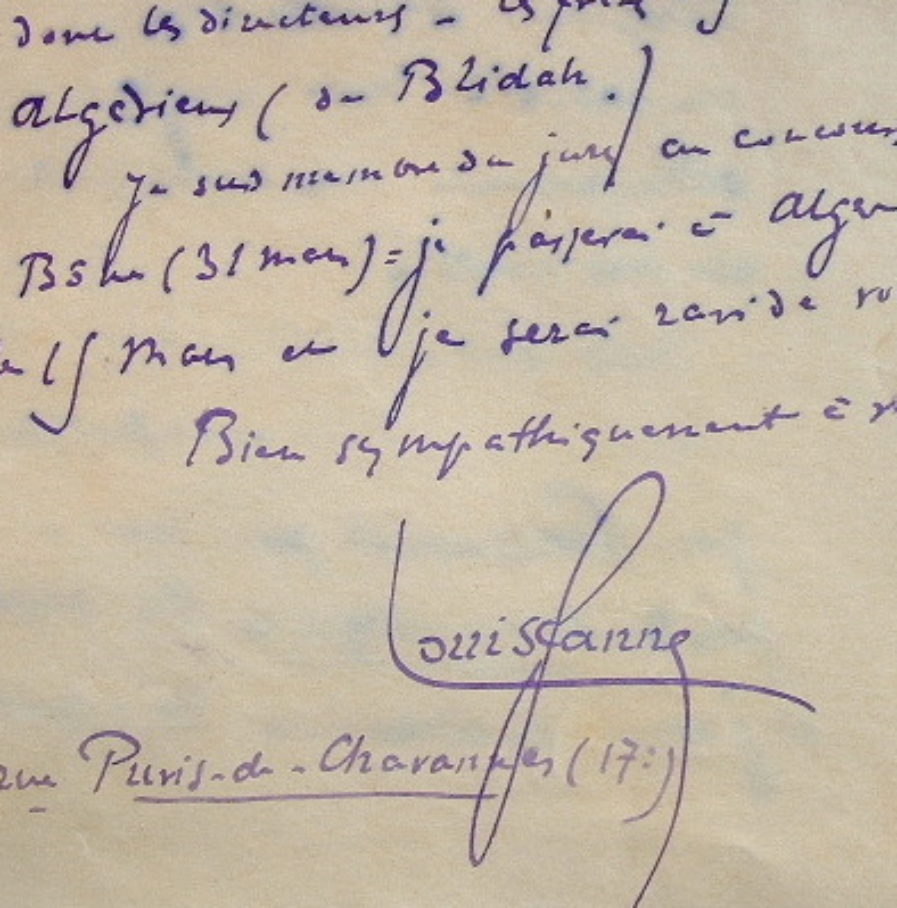 donc les directeurs - les
algériens (de Blidah.)
Je suis membre du jury au concours
Bône (31 mars) = je passerai à Alger
le 15 mars et je serai ravi de
Bien sympathiquement à
Louis Fanne
rue Puvis-de-Chavannes (17:)